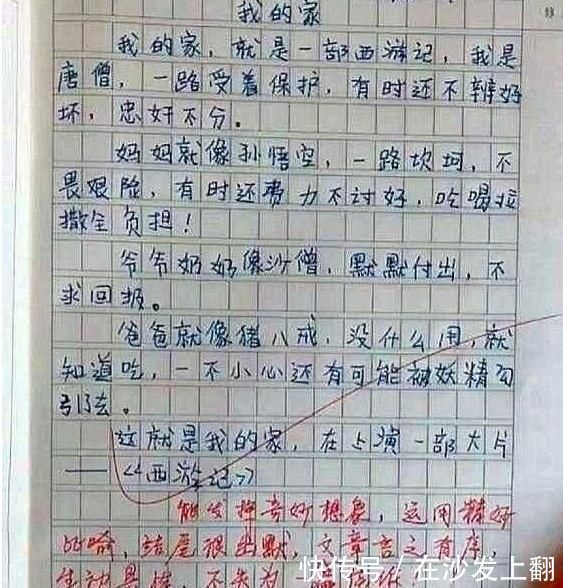 我的家
我的家，就是一部西游记，我是
唐僧，一路受着保护，有时还不辨好
坏，忠奸不分。
妈妈就像孙悟空，一路坎坷，不
畏艰险，有时还费力不讨好，吃喝拉
撒全负担！
爷爷奶奶像沙僧，默默付出，不
求回报。
爸爸就像猪八戒，没什么用，就
知道吃，一不小心还有可能被妖精勾
引去。
这就是我的家，在上演一部大片
——《西游记》
能发挥奇妙想象，运用精妙
比喻，结尾很幽默，文章言之有序，
生动具体，不失为
快传号/在沙发上翻